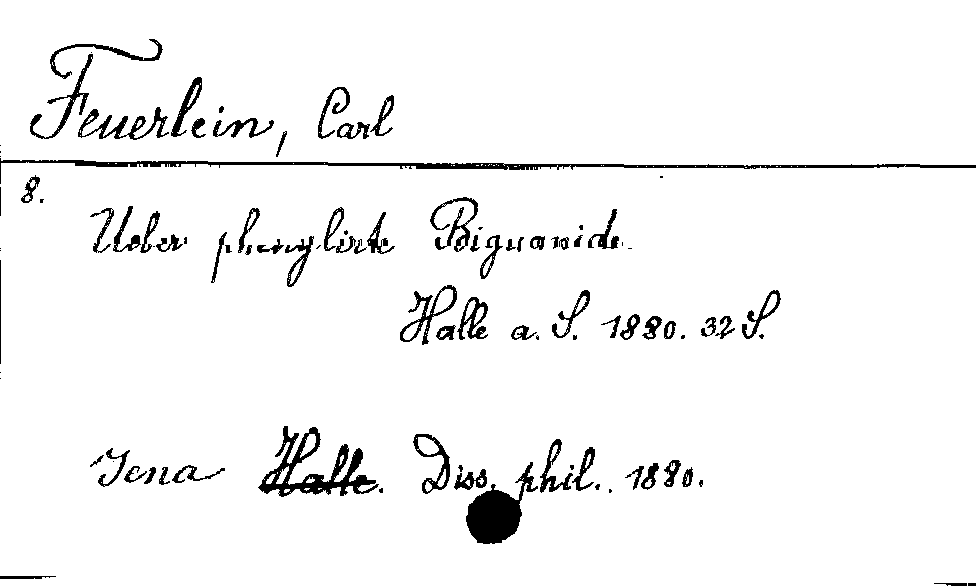 Feuerlein, Carl
8.
Ueber phenylirte Biguanide.
Halle a. S. 1880. 32 S.
Jena Halle. Diss. phil. 1880.